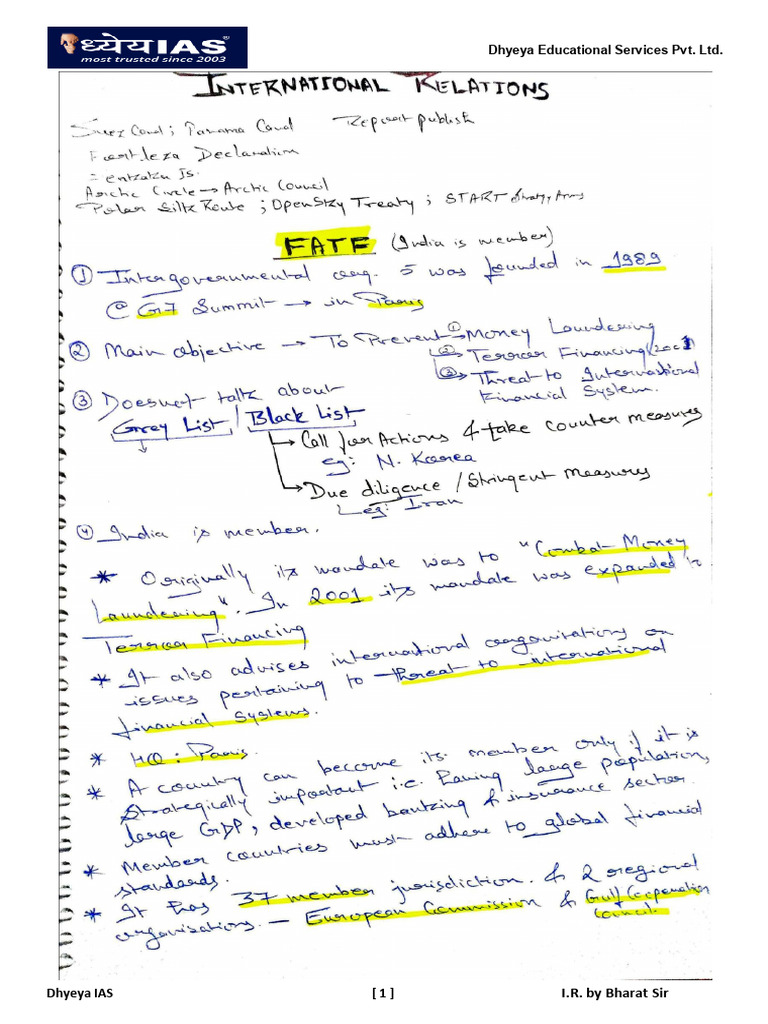 ध्येय IAS®
most trusted since 2003
Dhyeya Educational Services Pvt. Ltd.
INTERNATIONAL RELATIONS
Suez Canal; Panama Canal Report publish
Declaration
Is.
Arctic Circle → Arctic Council
Polar Silk Route ; Open Sky Treaty ; START
FATF (India is member)
① Intergovernmental org. & was founded in 1989
@ G7 Summit → in Paris
② Main objective → To Prevent → ① Money Laundering
② Terror Financing (2001)
③ Threat to International
Financial System.
③ Doesnot talk about
Grey List / Black List
→ Call for Actions & take counter measures
eg: N. Korea
→ Due diligence / Stringent Measures
eg: Iran
④ India is member.
* Originally its mandate was to "Combat Money
Laundering". In 2001 its mandate was expanded to
Terror Financing
* It also advises international organisations on
issues pertaining to threat to international
financial systems.
* HQ : Paris.
* A country can become its member only if it is
Strategically important i.e. Having large population,
large GDP, developed banking & insurance sector.
* Member countries must adhere to global financial
standards.
* It has 37 member jurisdiction & 2 regional
organisations. – European Commission & Gulf Cooperation
Council.
Dhyeya IAS [ 1 ] I.R. by Bharat Sir